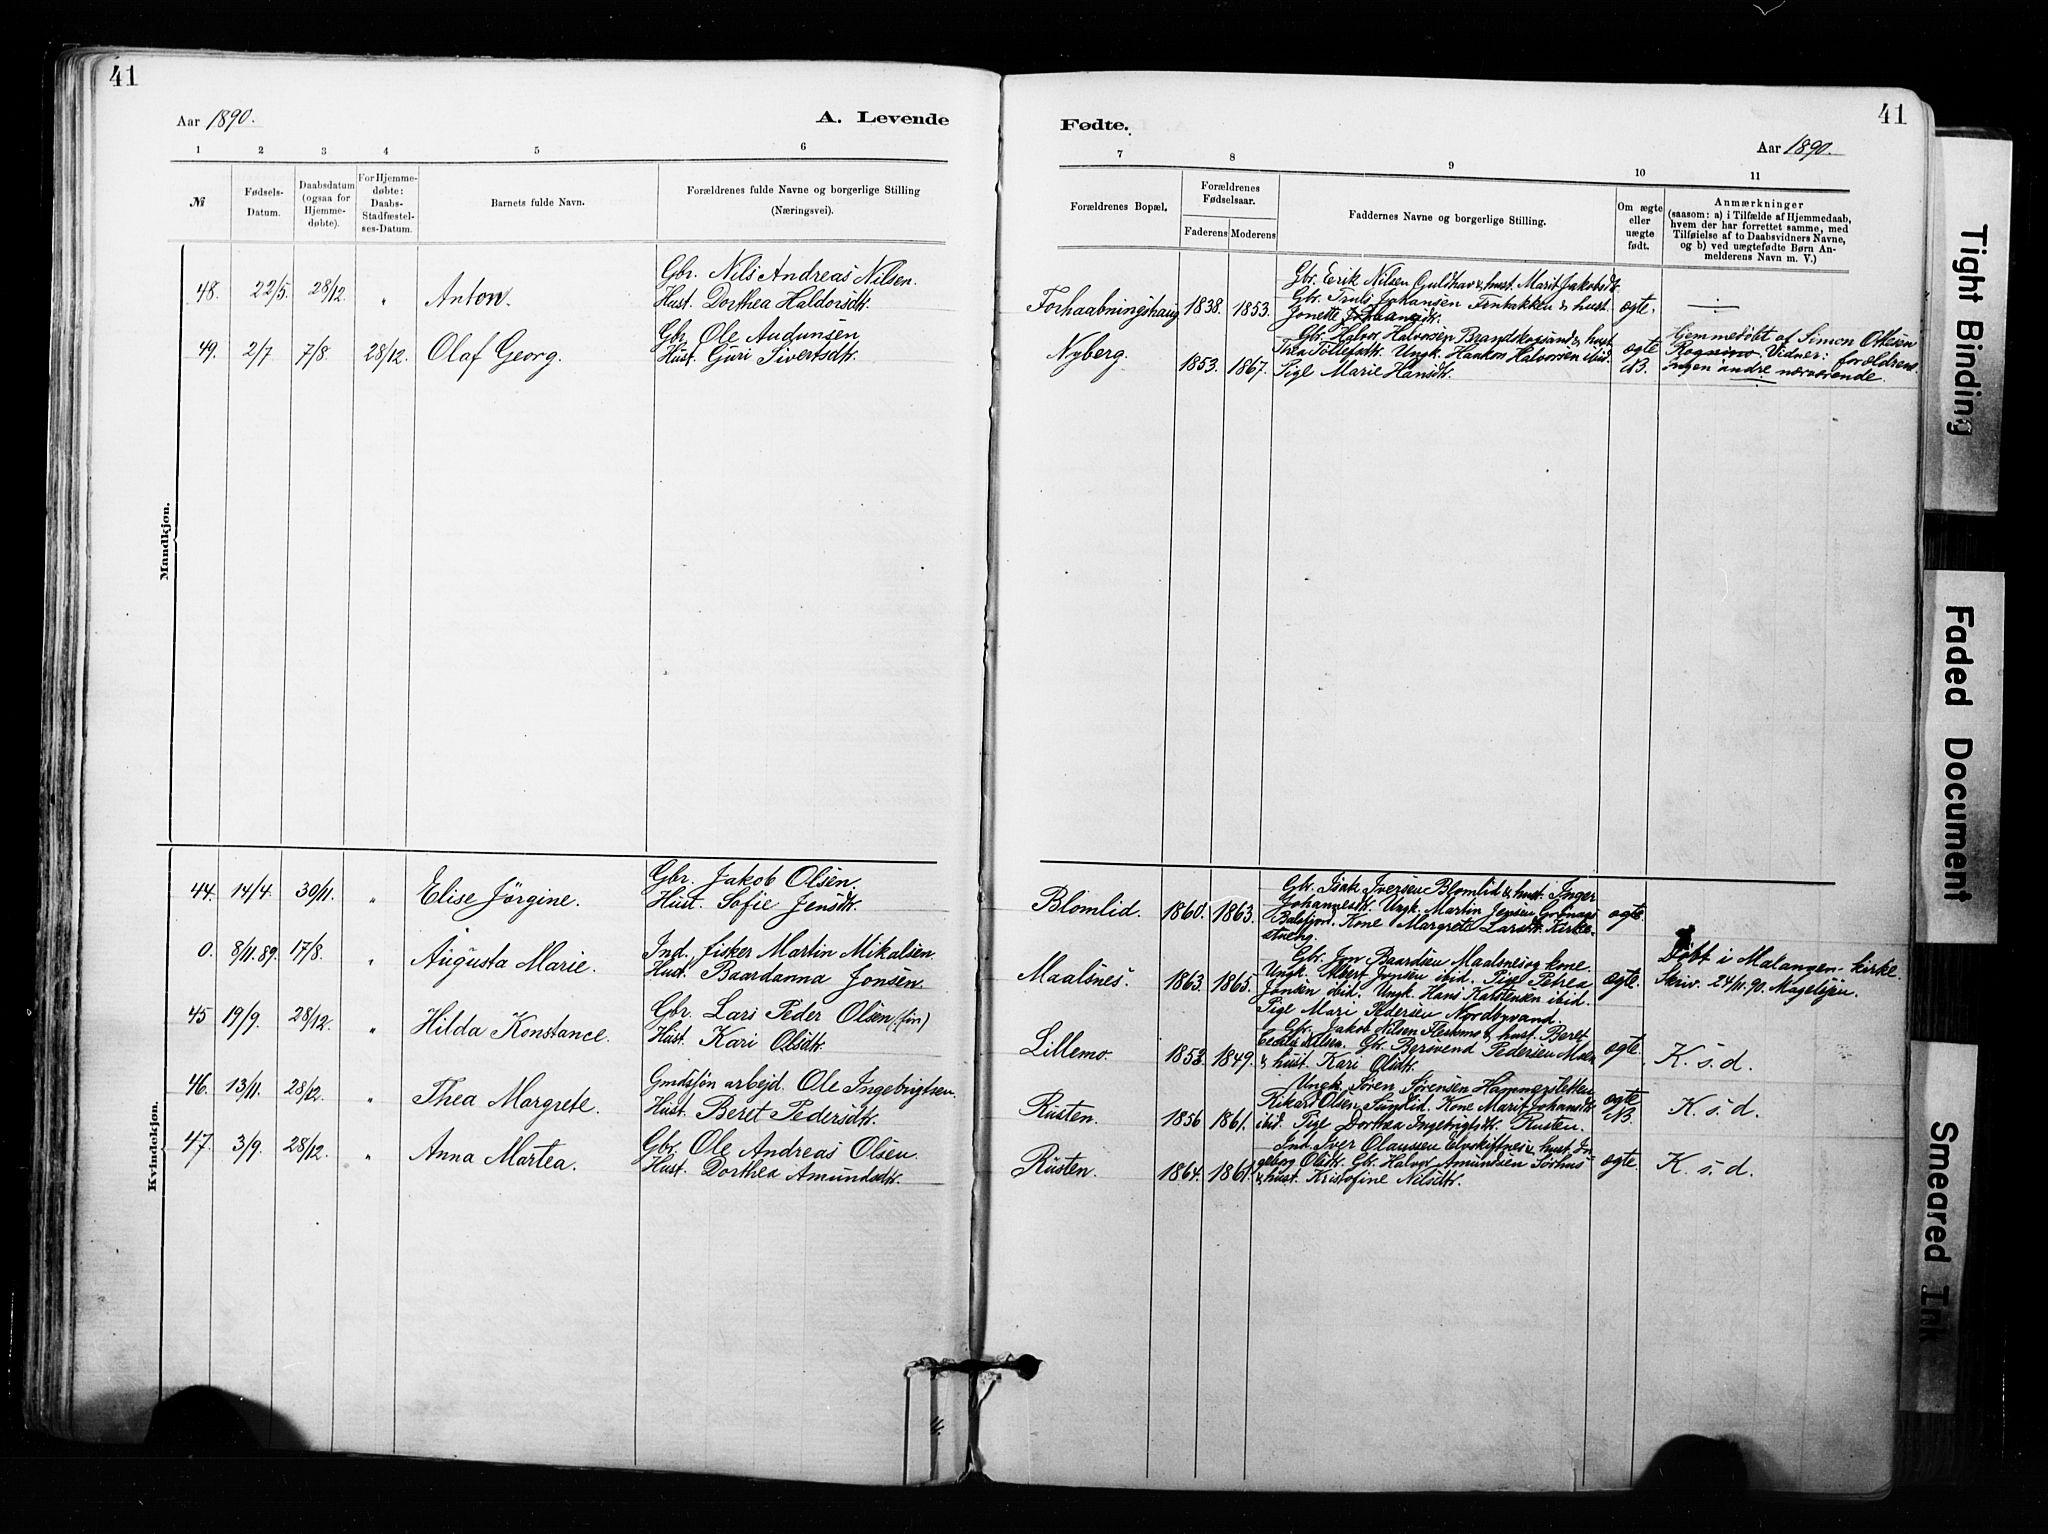 41
Aar 1890.
A. Levende
1 2 3 4 5 6
№
Fødsels-
Datum.
Daabsdatum
(ogsaa for
Hjemme-
døbte).
For Hjemme-
døbte:
Daabs-
Stadfæstel-
ses-Datum.
Barnets fulde Navn.
Forældrenes fulde Navne og borgerlige Stilling
(Næringsvei).
Mandkjøn.
48. 22/5. 28/12. " Anton.
Gbr. Nils Andreas Nilsen.
Hust. Dorthea Haldorsdtr.
49. 2/7. 7/8. 28/12. Olaf Georg.
Gbr. Ole Audunsen
Hust. Guri Sivertsdtr.
Kvindekjøn.
44. 14/4. 30/11. " Elise Jörgine.
Gbr. Jakob Olsen.
Hust. Sofie Jensdtr.
0. 8/11.89. 17/8. " Augusta Marie.
Ind. fisker Martin Mikalsen.
Hust. Baardanna Jonsen.
45 19/9. 28/12. " Hilda Konstance.
Gbr. Lars Peder Olsen (fin)
Hust. Kari Olsdtr.
46. 13/11. 28/12. " Thea Margrete.
Gmdsfön arbejd. Ole Ingebrigtsen.
Hust. Beret Pedersdtr.
47. 3/9. 28/12. " Anna Martea.
Gbr. Ole Andreas Olsen.
Hust. Dorthea Amundsdtr.
41
Fødte.
Aar 1890.
7 8 9 10 11
Forældrenes Bopæl.
Forældrenes
Fødselsaar.
Faderens Moderens
Faddernes Navne og borgerlige Stilling.
Om ægte
eller
uægte
født.
Anmærkninger
(saasom: a) i Tilfælde af Hjemmedaab,
hvem der har forrettet samme, med
Tilføielse af to Daabsvidners Navne,
og b) ved uægtefødte Børn An-
melderens Navn m. V.)
Forhaabningshaug 1838. 1853.
Gbr. Erik Nilsen Guldhav & hust. Marit Jakobsdtr.
Gbr. Truls Johansen & hust.
Jonette
ægte.
Nyberg. 1853. 1867.
Gbr. Halvor Halvorsen Brandskogsund & hust.
Thea Tollefsdtr. Ungk. Haakon Halvorsen ibid.
Pige Marie Hansdtr.
ægte
NB.
Hjemmedöbt af Simon Olsen
Vidner: forældrene
Ingen andre nærværende.
Blomlid. 1860. 1863.
Gbr. Isak Iversen Blomlid & hust. Inger
Johannesdtr. Ungk. Martin Jensen
Balsfjord. Kone Margrete Larsdtr. Kirke-
stueng.
ægte.
Maalsnes. 1863. 1865.
Gbr. Jon Baardsen Maalsnes og kone.
Ungk. Albert Jonsen ibid. Pige Petrea
Jonsen ibid. Ungk. Hans Karstensen ibid.
Pige Mari Pedersen Nordbyvand.
ægte.
Döbt i Malangen kirke.
Skriv. 24/11.90. Magelsen.
Lillemo. 1853. 1849.
Gbr. Jakob Nilsen Fleskmo & hust. Beret
Olsen. Gbr. Bersvend Pedersen Moen
& hust. Kari Olsdtr.
ægte.
K. s. d.
Rusten. 1856 1861.
Ungk. Sören Sörensen Hammersletten
Rikard Olsen Sundlid. Kone Marit Johansdtr
ibid. Pige Dorthea Ingebrigtsdtr. Rusten.
ægte
NB.
K. s. d.
Rusten. 1864. 1861.
Ind. Iver Olaussen Elvskiftnes & hust. In-
geborg Olsdtr. Gbr. Halvor Amundsen Sörhus
& hust. Kristofine Nilsdtr.
ægte.
K. s. d.
Tight Binding
Faded Document
Smeared Ink